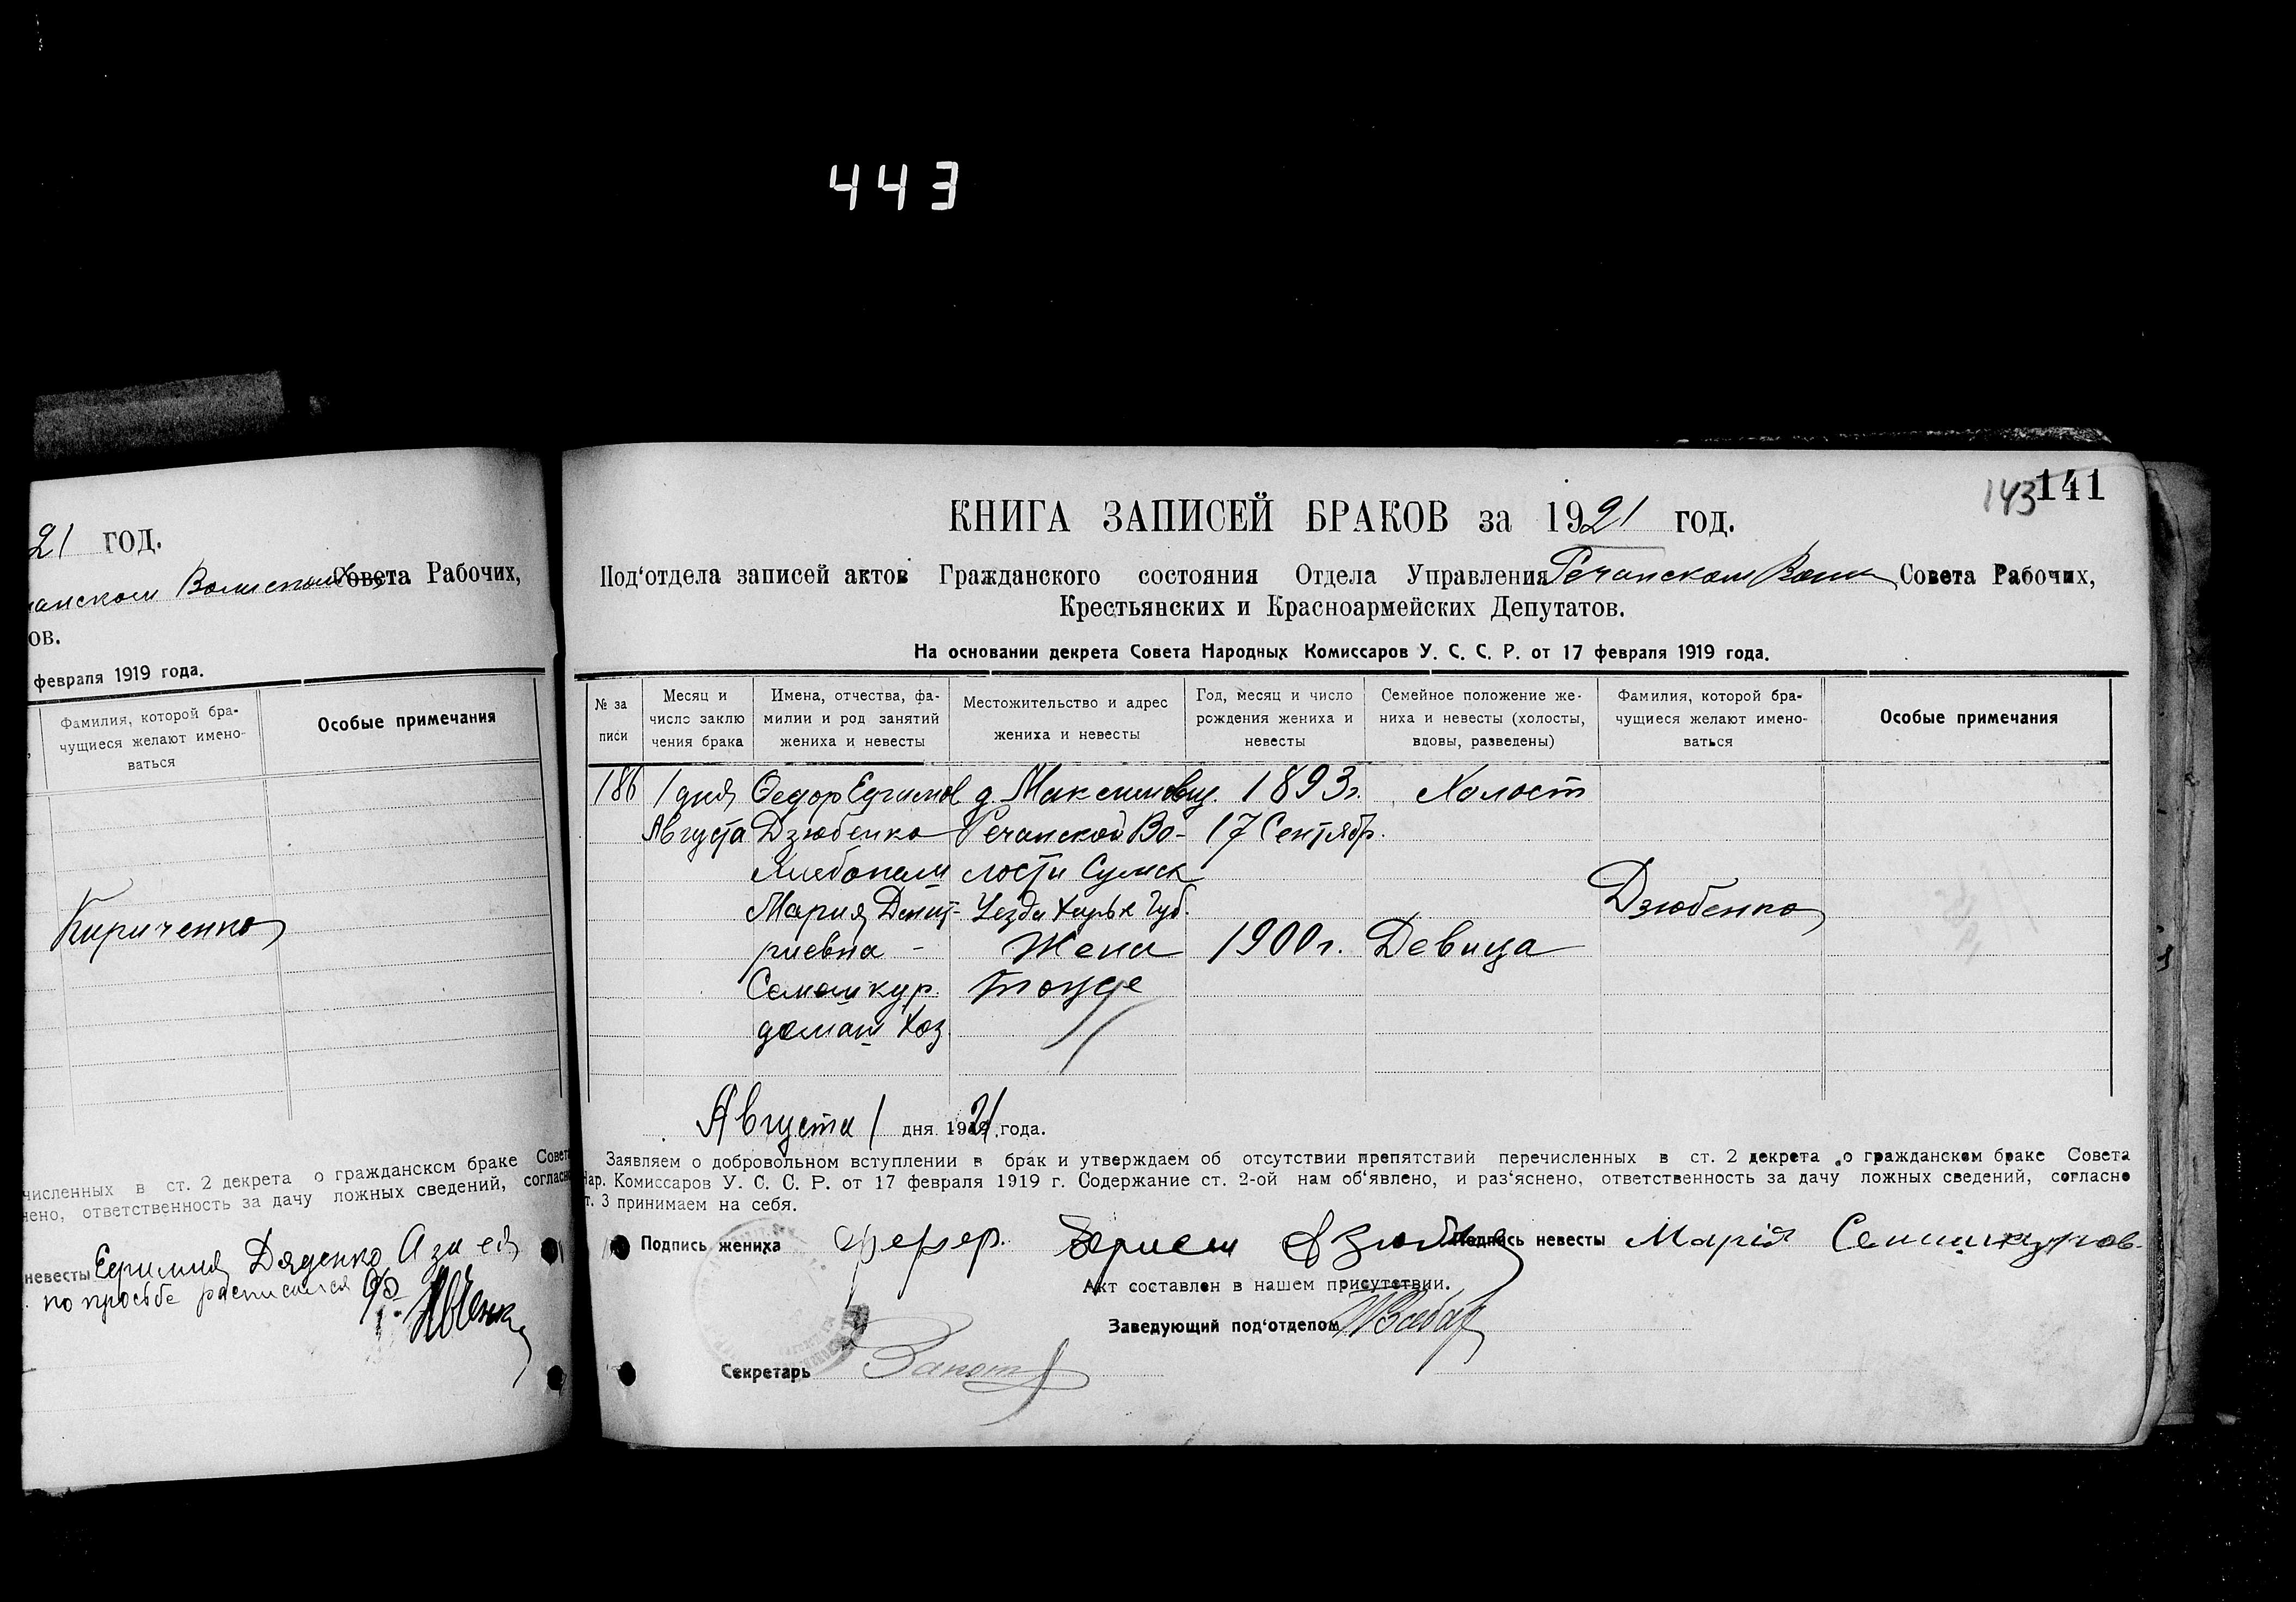 443
21 год.
Совета Рабочих,
ов.
февраля 1919 года.
Фамилия, которой бра-
чущиеся желают имено-
ваться
Особые примечания
Кириченко
численных в ст. 2 декрета о гражданском браке Совета
нено, ответственность за дачу ложных сведений, согласно
невесты Ефимия Дяденко А за ея
по просьбе расписался
143 141
КНИГА ЗАПИСЕЙ БРАКОВ за 1921 год.
Под‘отдела записей актов Гражданского состояния Отдела Управления Речанском Совета Рабочих,
Крестьянских и Красноармейских Депутатов.
На основании декрета Совета Народных Комиссаров У. С. С. Р. от 17 февраля 1919 года.
№ за
писи
Месяц и
число заклю
чения брака
Имена, отчества, фа-
милии и род занятий
жениха и невесты
Местожительство и адрес
жениха и невесты
Год, месяц и число
рождения жениха и
невесты
Семейное положение же-
ниха и невесты (холосты,
вдовы, разведены)
Фамилия, которой бра-
чущиеся желают имено-
ваться
Особые примечания
186 1 дня Федор Ефимов д. 1893 г. Холост
Августа Дзюбенко Речанской Во- 17 Сентябр.
Хлебопаш лости Сумск
Мария Дмит- Уезда Харьк Губ. Дзюбенко
риевна - Жена 1900 г. Девица
тоже
домаш хоз
Августа 1 дня 1921 года.
Заявляем о добровольном вступлении в брак и утверждаем об отсутствии препятствий перечисленных в ст. 2 декрета о гражданском браке Совета
Нар. Комиссаров У. С. С. Р. от 17 февраля 1919 г. Содержание ст. 2-ой нам об‘явлено, и раз‘яснено, ответственность за дачу ложных сведений, согласно
ст. 3 принимаем на себя.
Подпись жениха Подпись невесты Марія
Акт составлен в нашем присутствии.
Заведующий под‘отделом
Секретарь